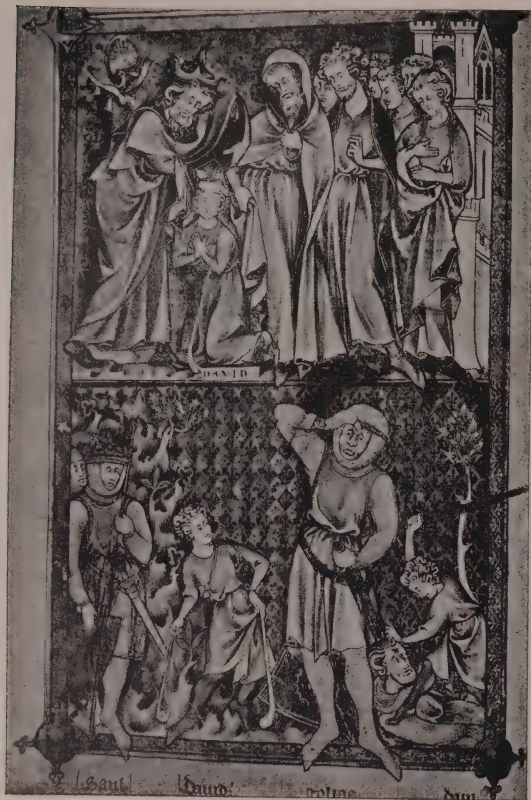 DAVID
Saul dauid golias daui